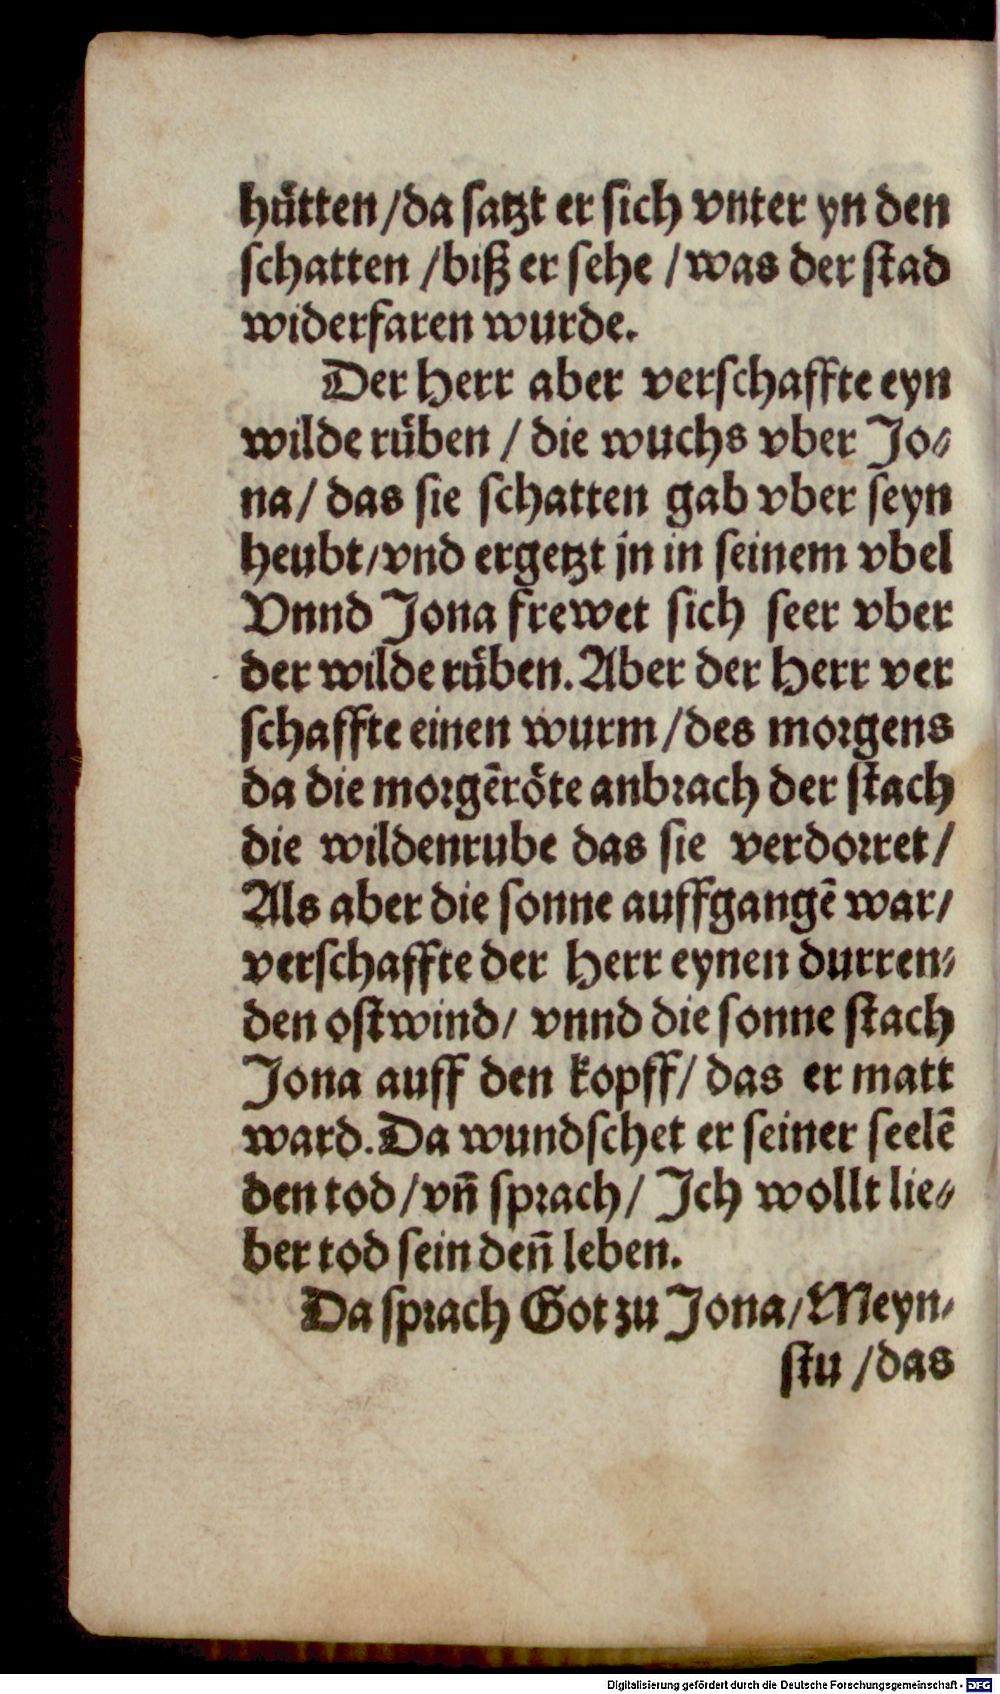 huͤtten /da satzt er sich vnter yn den
schatten /biß er sehe /was der stad
widerfaren wurde.
Der Herr aber verschaffte eyn
wilde ruͤben / die wuchs vber Jo⸗
na/ das sie schatten gab vber seyn
heubt/vnd ergetzt jn in seinem vbel
Vnnd Jona frewet sich seer vber
der wilde ruͤben. Aber der Herr ver
schaffte einen wurm /des morgens
da die morgẽroͤte anbrach der stach
die wildenrube das sie verdorret/
Als aber die sonne auffgangẽ war/
verschaffte der Herr eynen durren⸗
den ostwind/ vnnd die sonne stach
Jona auff den kopff/ das er matt
ward. Da wundschet er seiner seelẽ
den tod /vñ sprach/ Ich wollt lie⸗
ber tod sein deñ leben.
Da sprach Got zu Jona/Meyn⸗
stu /das
Digitalisierung gefördert durch die Deutsche Forschungsgemeinschaft - DFG